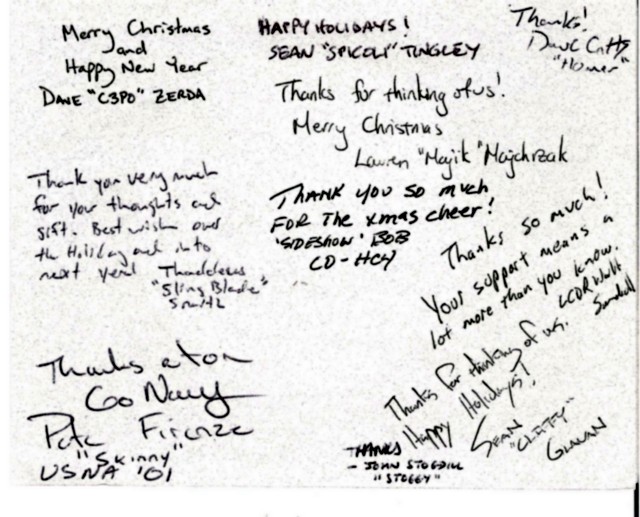 Merry Christmas
and
Happy New Year
DAVE "C3PO" ZERDA
HAPPY HOLIDAYS!
SEAN "SPICOLI" TINGLEY
Thanks!
Dave
"Homer"
Thanks for thinking of us!
Merry Christmas
Lauren "Majik" Majchrzak
Thank you very much
for your thoughts and
gift. Best wishes over
the Holiday and into
next year Thaddeus
"Sling Blade"
Smith
THANK YOU SO much
FOR THE xmas cheer!
'SIDESHOW' BOB
CO - HC4
Thanks so much!
Your support means a
lot more than you know.
LCDR
Thanks a ton
Go Navy
Pete Firenze
"Skinny"
USNA '01
Thanks for thinking of us.
Happy Holidays!
SEAN
THANKS
- JOHN STOGDILL
"STOGGY"